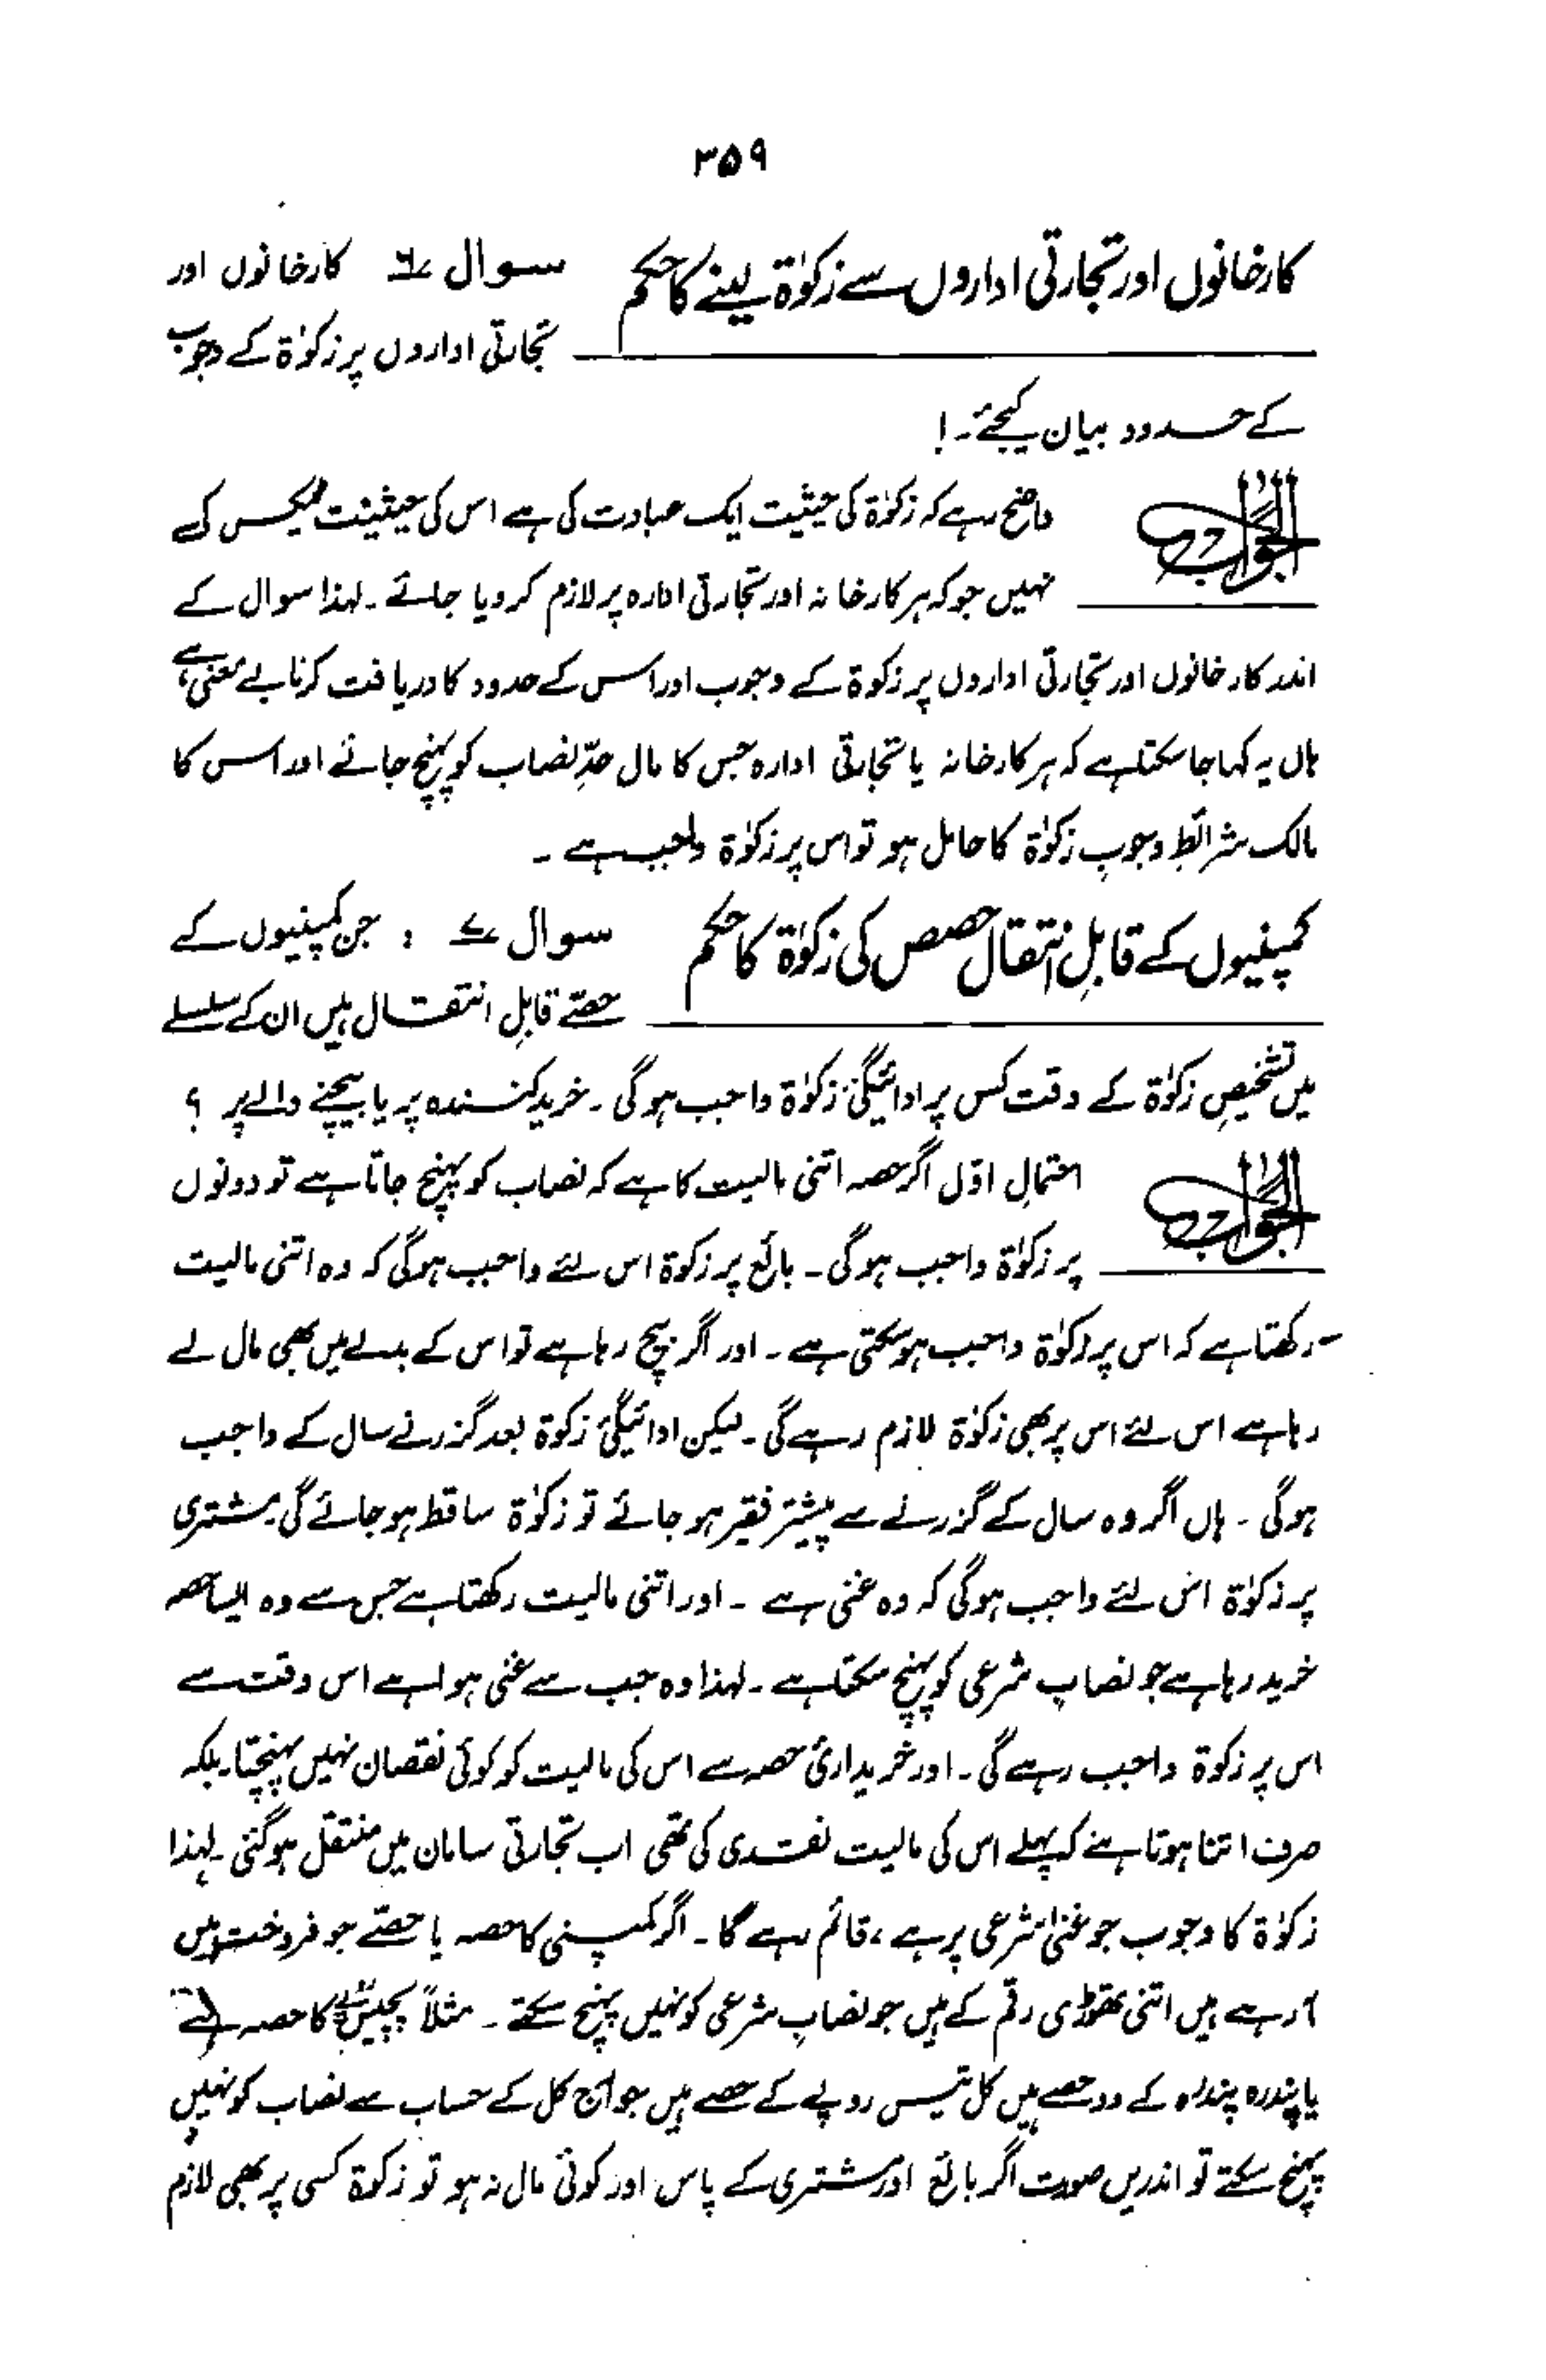 ۳۵۹
کارخانوں اور تجارتی اداروں سے زکوٰۃ لینے کا حکم
سوال ۶؎ کارخانوں اور
تجارتی اداروں پر زکوٰۃ کے وجوب
کے حدود بیان کیجئے۔!
الجواب
واضح رہے کہ زکوٰۃ کی حیثیت ایک عبادت کی ہے اس کی حیثیت ٹیکس کی
نہیں جو کہ ہر کارخانہ اور تجارتی ادارہ پر لازم کر دیا جائے۔ لہذا سوال کے
اندر کارخانوں اور تجارتی اداروں پر زکوٰۃ کے وجوب اور اس کے حدود کا دریافت کرنا بے معنی ہے
ہاں یہ کہا جا سکتا ہے کہ ہر کارخانہ یا تجارتی ادارہ جس کا مال حدِّ نصاب کو پہنچ جائے اور اس کا
مالک شرائطِ وجوبِ زکوٰۃ کا حامل ہو تو اس پر زکوٰۃ واجب ہے ۔
کمپنیوں کے قابلِ انتقال حصص کی زکوٰۃ کا حکم
سوال ۷؎ : جن کمپنیوں کے
حصّے قابلِ انتقال ہیں ان کے سلسلے
میں تشخیصِ زکوٰۃ کے وقت کس پر ادائیگیٔ زکوٰۃ واجب ہوگی ۔ خرید کنندہ پر یا بیچنے والے پر ؟
الجواب
احتمالِ اوّل اگر حصہ اتنی مالیت کا ہے کہ نصاب کو پہنچ جاتا ہے تو دونوں
پر زکوٰۃ واجب ہوگی ۔ بائع پر زکوٰۃ اس لئے واجب ہوگی کہ وہ اتنی مالیت
رکھتا ہے کہ اس پر زکوٰۃ واجب ہو سکتی ہے ۔ اور اگر بیچ رہا ہے تو اس کے بدلے میں بھی مال لے
رہا ہے اس لئے اس پر بھی زکوٰۃ لازم رہے گی ۔ لیکن ادائیگیٔ زکوٰۃ بعد گزرنے سال کے واجب
ہوگی ۔ ہاں اگر وہ سال کے گزرنے سے پیشتر فقیر ہو جائے تو زکوٰۃ ساقط ہو جائے گی۔ مشتری
پر زکوٰۃ اس لئے واجب ہوگی کہ وہ غنی ہے ۔ اور اتنی مالیت رکھتا ہے جس سے وہ ایسا حصہ
خرید رہا ہے جو نصابِ شرعی کو پہنچ سکتا ہے ۔ لہذا وہ جب سے غنی ہوا ہے اس وقت سے
اس پر زکوٰۃ واجب رہے گی ۔ اور خریداریٔ حصہ سے اس کی مالیت کو کوئی نقصان نہیں پہنچتا۔ بلکہ
صرف اتنا ہوتا ہے کہ پہلے اس کی مالیت نقدی کی تھی اب تجارتی سامان میں منتقل ہوگئی۔ لہذا
زکوٰۃ کا وجوب جو غنیٔ شرعی پر ہے ، قائم رہے گا ۔ اگر کمپنی کا حصہ یا حصّے جو فروخت میں
آ رہے ہیں اتنی تھوڑی رقم کے ہیں جو نصابِ شرعی کو نہیں پہنچ سکتے ۔ مثلاً پچیس کا حصہ ہے
یا پندرہ پندرہ کے دو حصے ہیں کل تیس روپے کے حصے ہیں جو آج کل کے حساب سے نصاب کو نہیں
پہنچ سکتے تو اندریں صورت اگر بائع اور مشتری کے پاس اور کوئی مال نہ ہو تو زکوٰۃ کسی پر بھی لازم